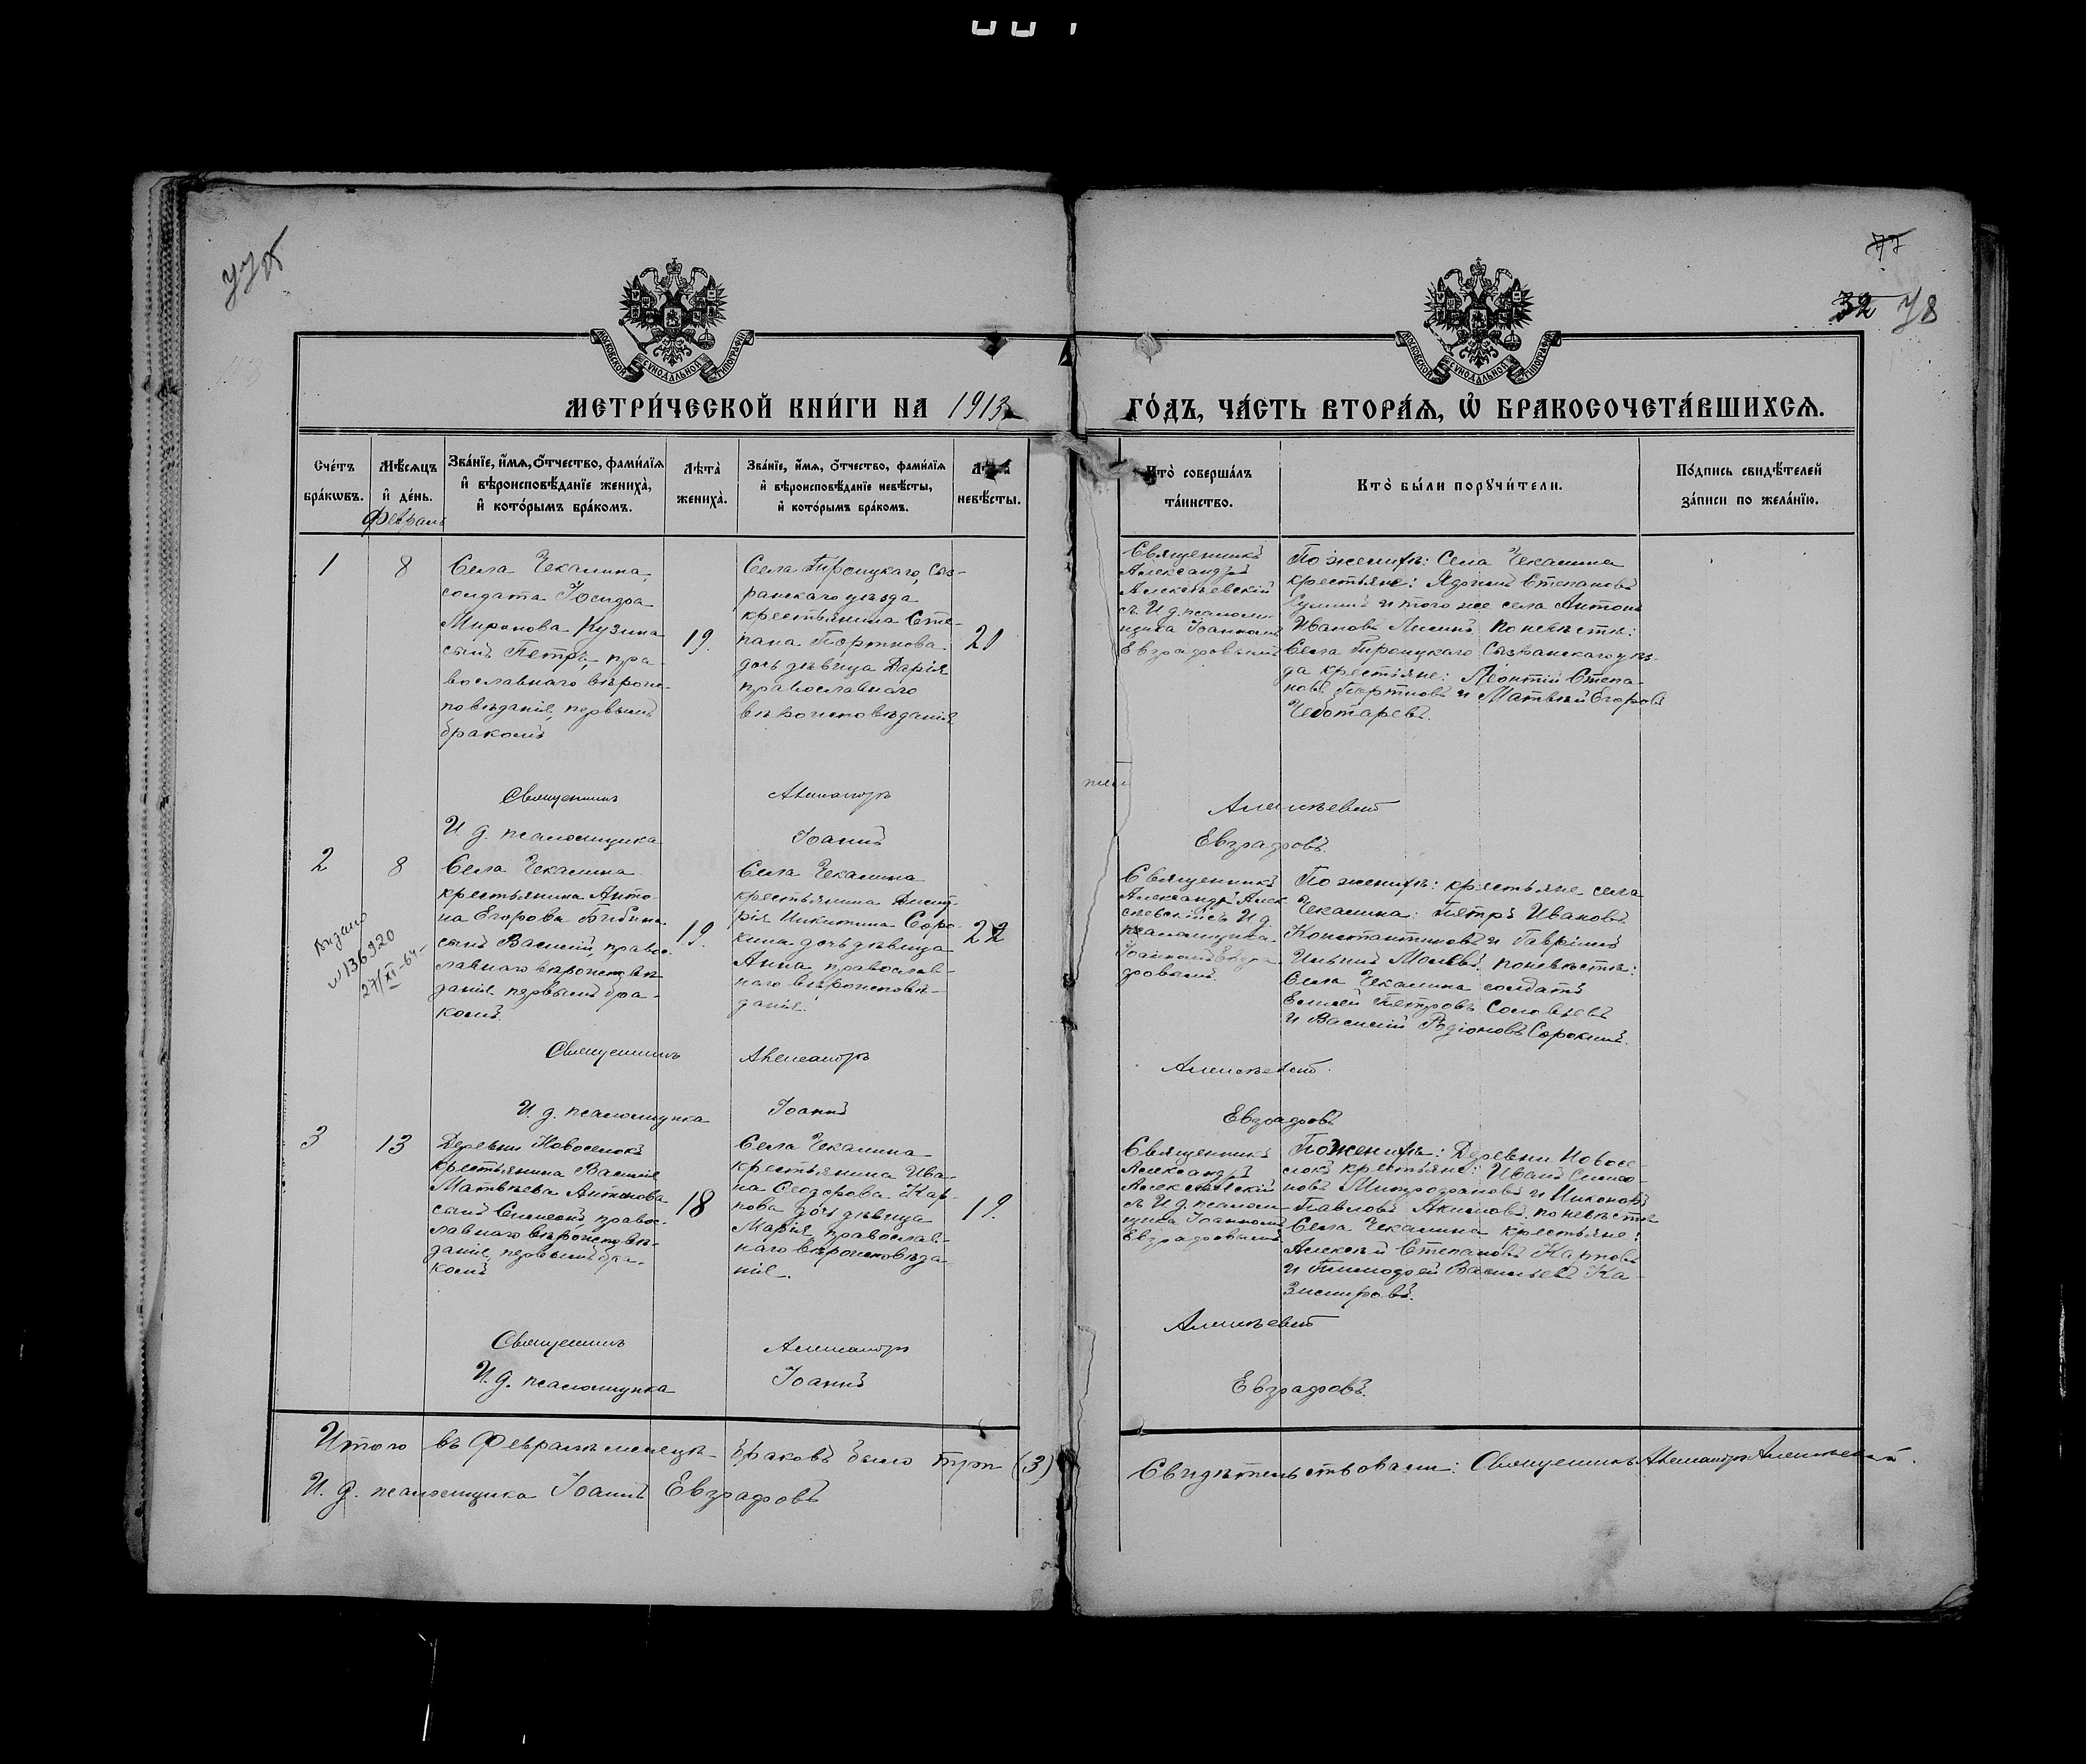 77об
77
32 78
МОСКОВСКОЙ СѴНОДАЛЬНОЙ ТИПОГРАФІИ
МОСКОВСКОЙ СѴНОДАЛЬНОЙ ТИПОГРАФІИ
МЕТРИ́ЧЕСКОЙ КНИ́ГИ НА 1913
ГО́ДЪ, ЧА́СТЬ ВТОРА́Я, Ѡ҆ БРАКОСОЧЕТА́ВШИХСЯ.
Сче́тъ
бра́кѡвъ.
Мѣ́сяцъ
и҆ де́нь.
Февраль
Зва́нїе, и҆́мя, ѻ҆́тчество, фами́лїя
и҆ вѣроисповѣ́данїе жениха̀,
и҆ кото́рымъ бра́комъ.
Лѣта̀
жениха̀.
Зва́нїе, и҆́мя, ѻ҆́тчество, фами́лїя
и҆ вѣроисповѣ́данїе невѣ́сты,
и҆ кото́рымъ бра́комъ.
Лѣта̀
невѣ́сты.
Кто̀ соверша́лъ
та́инство.
Кто̀ бы́ли порꙋчи́тели.
По́дпись свидѣ́телей
за́писи по жела́нїю.
1
8
Села Чекалина,
солдата Іосифа
Миронова Кузина
сынъ Петръ, пра-
вославнаго вѣроис-
повѣданія, первымъ
бракомъ
19.
Села Троицкаго, Сыз-
ранскаго уѣзда
крестьянина Сте-
пана Портнова
дочь дѣвица Дарія
православнаго
вѣроисповѣданія
20
Священникъ
Александръ
Алексѣевскій
съ И. д. псалом-
щика Іоанномъ
Евграфовымъ
По женихѣ: Села Чекалина
крестьяне: Степановъ
и того же села Антонъ
Ивановъ Лисинъ по невѣстѣ:
Села Троицкаго Сызранскаго уѣз-
да крестьяне: Леонтій Степа-
новъ Портновъ и Матвѣй Егоровъ
Чеботаревъ.
Священникъ Александръ Алексѣевскій
И. д. псаломщика Іоаннъ Евграфовъ.
2
8
Выдано
№ 136920
27/XI-64-
Села Чекалина
крестьянина Анто-
на Егорова Бибина
сынъ Василій, правос-
лавнаго вѣроисповѣ-
данія, первымъ бра-
комъ.
19.
Села Чекалина
крестьянина Дмит-
рія Никитина Соро-
кина дочь дѣвица
Анна, православ-
наго вѣроисповѣ-
данія.
22
Священникъ
Александръ Алек-
сѣевскій съ И. д.
псаломщика
Іоанномъ Евгра-
фовымъ.
По женихѣ: крестьяне села
Чекалина: Петръ Ивановъ
Константиновъ и Гавріилъ
Ильинъ по невѣстѣ:
Села Чекалина солдатъ
Петровъ Соловьевъ
и Василій Родіоновъ Сорокинъ.
Священникъ Александръ Алексѣевскій.
И. д. псаломщика Іоаннъ Евграфовъ
3
13
Деревни Новоселокъ
крестьянина Василія
Матвѣева Антонова
сынъ Симеонъ, правос-
лавнаго вѣроисповѣ-
данія, первымъ бра-
комъ
18
Села Чекалина
крестьянина Ива-
на Ѳеодорова Кар-
пова дочь дѣвица
Марія, православ-
наго вѣроисповѣда-
нія.
19.
Священникъ
Александръ
Алексѣевскій
съ И. д. псалом-
щика Іоанномъ
Евграфовымъ
По женихѣ: Деревни Новосе-
локъ крестьяне: Иванъ Симео-
новъ Митрофановъ и Никоноръ
Павловъ Акимовъ, по невѣстѣ
Села Чекалина крестьяне:
Алексѣй Степановъ Карповъ
и Тимофей Васильевъ Ка-
зимировъ.
Священникъ Александръ Алексѣевскій
И. д. псаломщика Іоаннъ Евграфовъ.
Итого въ Февралѣ мѣсяцѣ браковъ было три (3)
Свидѣтельствовали: Священникъ Александръ Алексѣевскій.
И. д. псаломщика Іоаннъ Евграфовъ